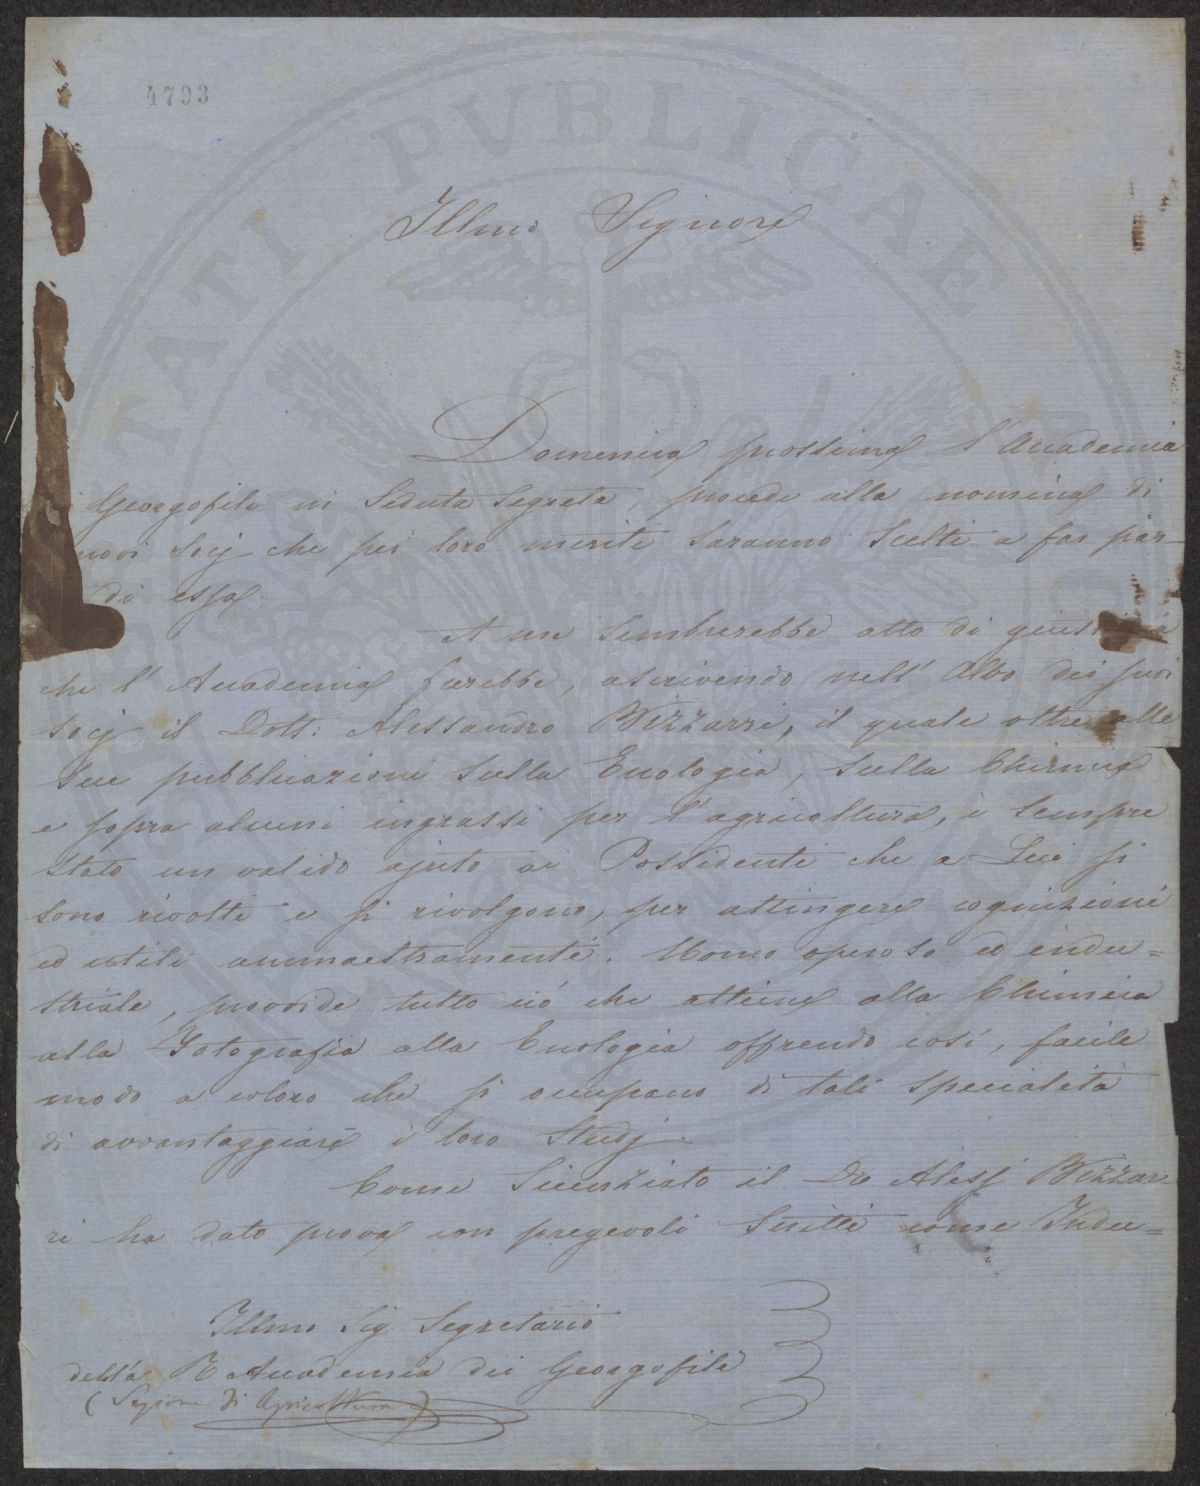 4793
Illmo Signore
Domenica prossima l'Accademia
Georgofili in Seduta Segreta, procede alla nomina di
nuovi Socj che pei loro meriti saranno Scelti a far par-
di essa.
A me Sembrerebbe atto di
che l'Accademia farebbe, ascrivendo nell'Albo dei suoi
Socj il Dott: Alessandro Bizzarri, il quale oltre alle
sue pubblicazioni sulla Enologia, sulla Chimica
e sopra alcuni ingrassi per l'agricoltura, è Sempre
stato un valido ajuto ai Possidenti che a Lui si
sono rivolti e si rivolgono, per attingere cognizioni
ed utili ammaestramenti. Uomo operoso ed indu=
striale, provvide tutto ciò che attiene alla Chimica
alla Fotografia alla Enologia offrendo così, facile
modo a coloro che si occupano di tali specialità
di avvantaggiare i loro Studj.
Come Scienziato il Dr Aless Bizzar
ri ha dato prova con pregevoli Scritti come Indu=
Illmo Sig. Segretario
della R Accademia dei Georgofili
(Sezione di Agricoltura)
PVBLICAE